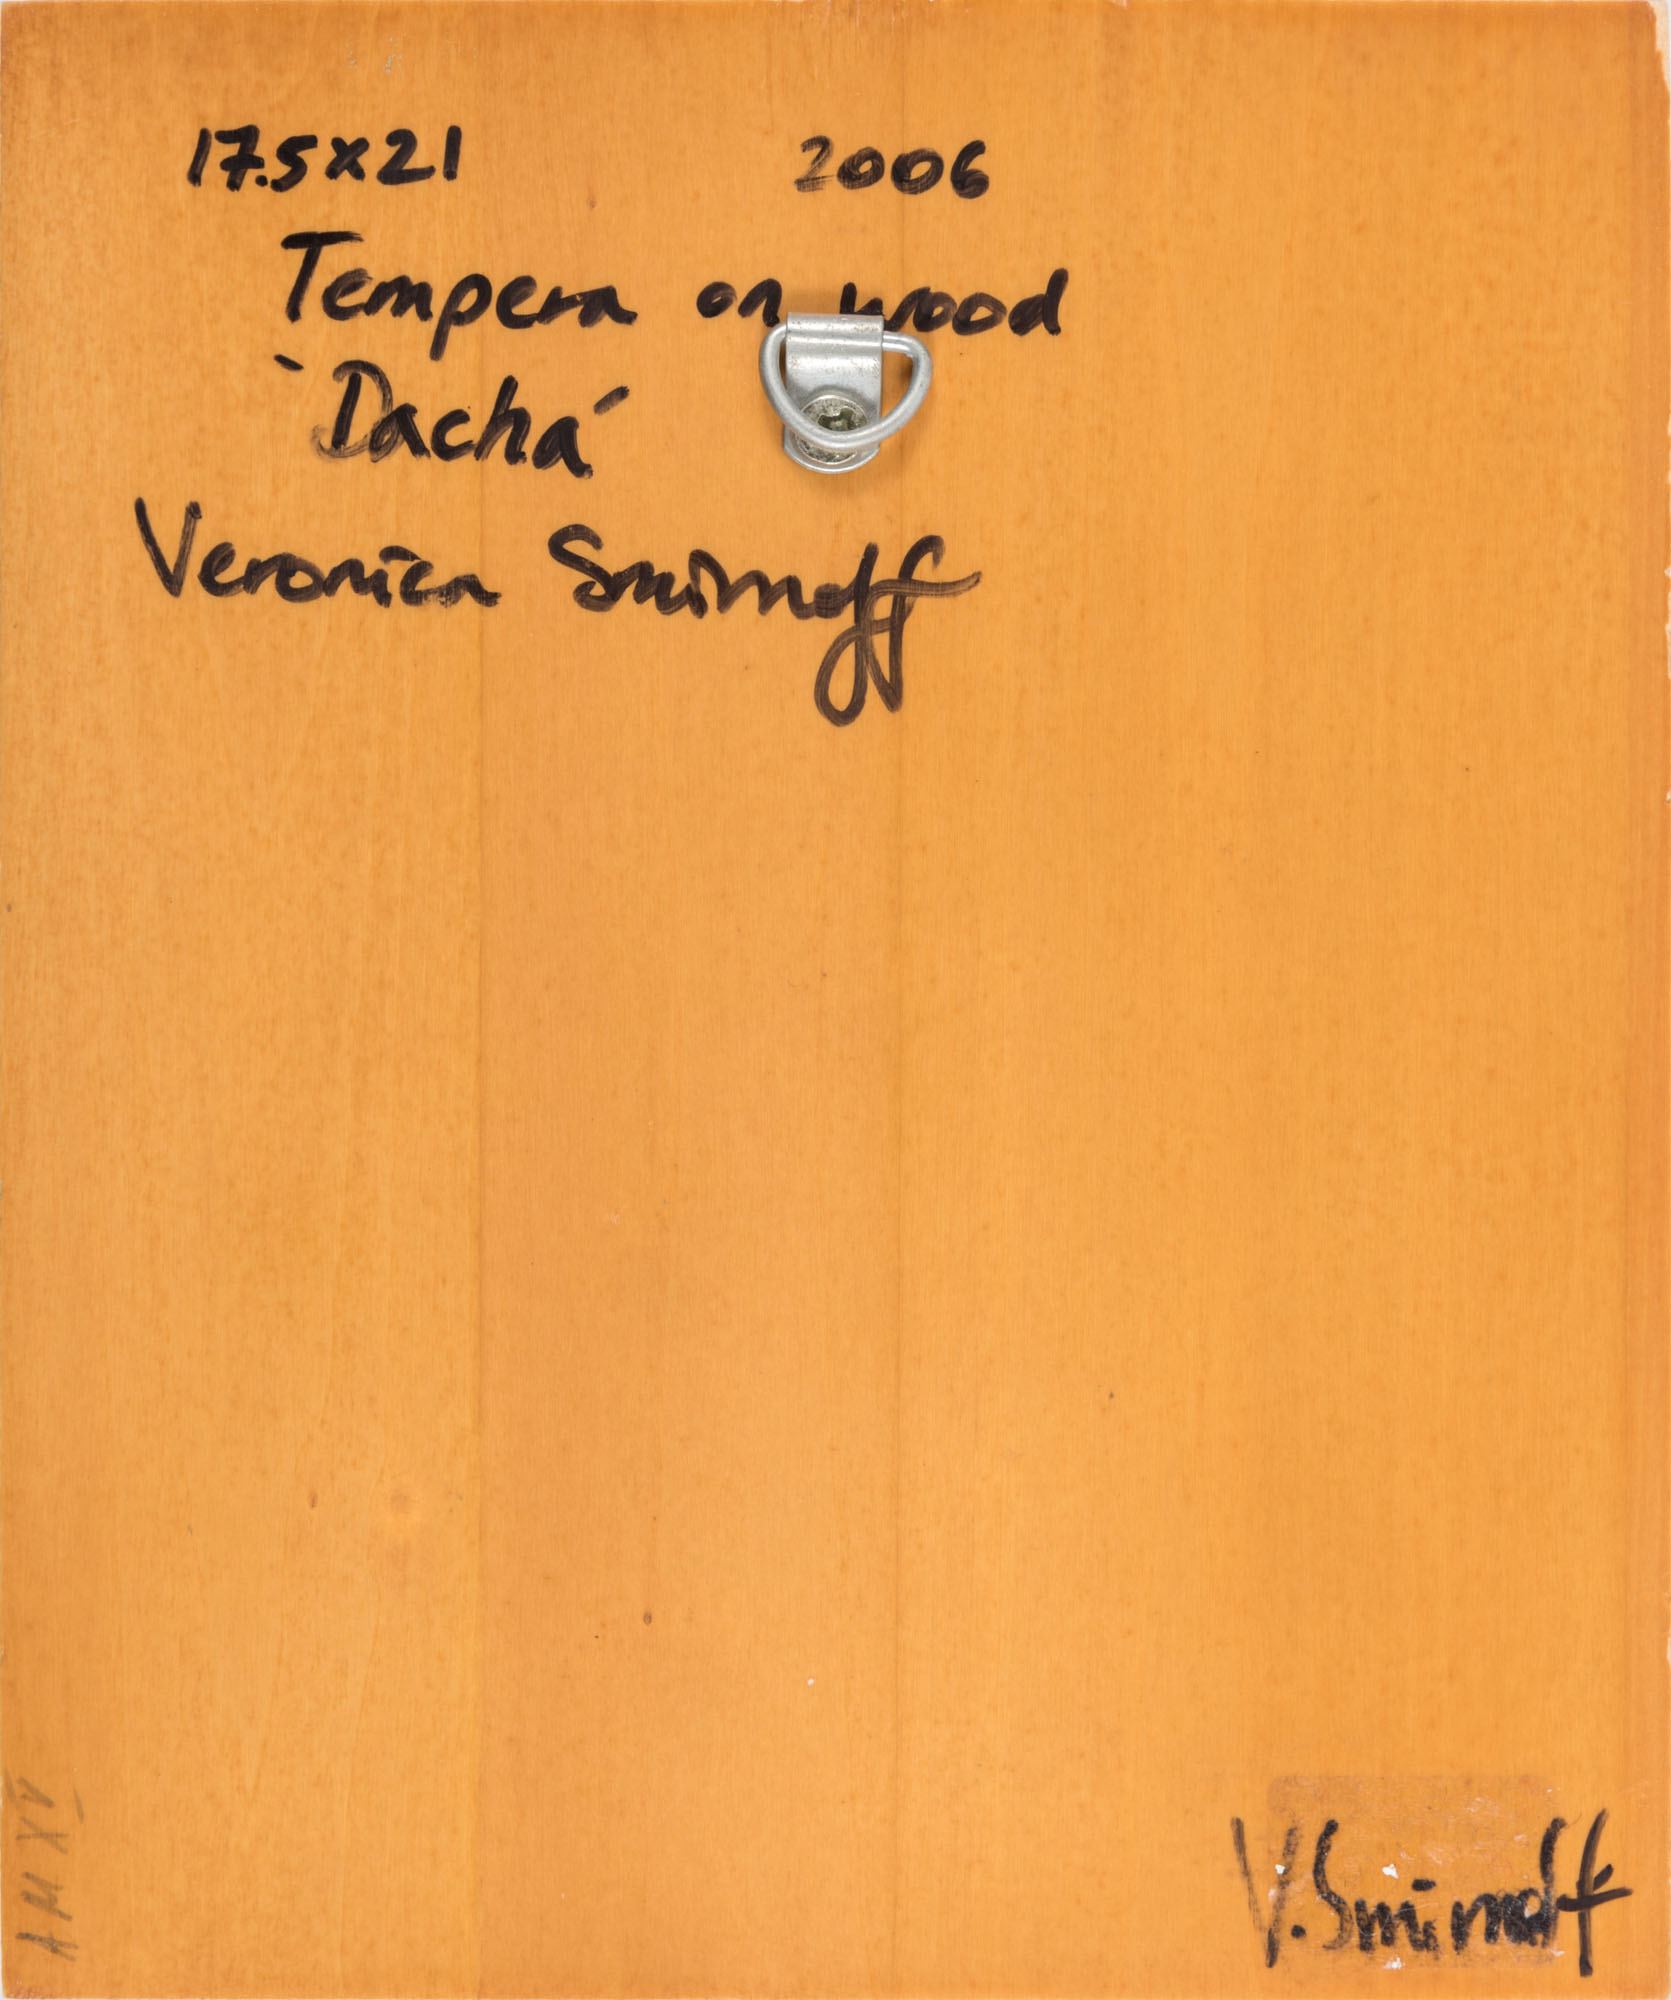 17.5x21 2006
Tempera on wood
`Dacha´
Veronica Smirnoff
V. Smirnoff